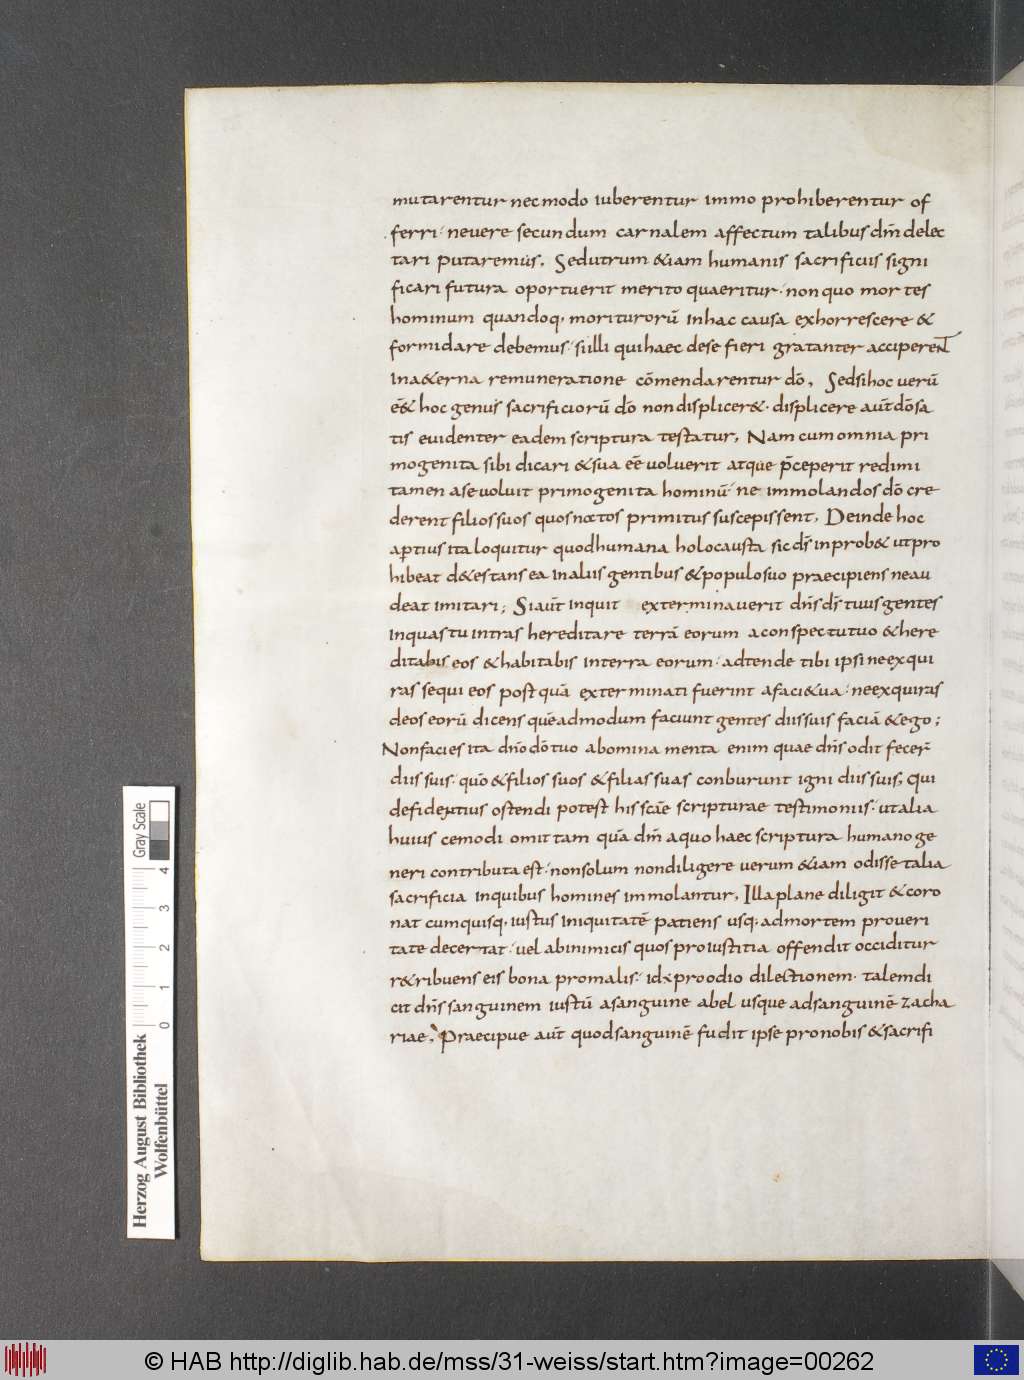 mutarentur nec modo iuberentur immo prohiberentur of
ferri· ne uere secundum carnalem affectum talibus dm̄ delec
tari putaremus. Sed utrum &iam humanis sacrificiis signi
ficari futura oportuerit merito quaeritur· non quo mortes
hominum quandoq· moriturorū in hac causa exhorrescere &
formidare debemus· si illi qui haec de se fieri gratanter acciperent
in a&erna remuneratione cōmendarentur dō. Sed si hoc uerū
ēē& hoc genus sacrificiorū dō non displicer&· displicere aut̄ dō sa
tis euidenter eadem scriptura testatur. Nam cum omnia pri
mogenita sibi dicari & sua eē uoluerit atque p̄ceperit redimi
tamen a se uoluit primogenita hominū· ne immolandos dō cre
derent filios suos quos natos primitus suscepissent. Deinde hoc
apertius ita loquitur quod humana holocausta sic ds̄ inprob& ut pro
hibeat d&estans ea in aliis gentibus & populo suo praecipiens ne au
deat imitari; Si aut̄ inquit exterminauerit dn̄s ds̄ tuus gentes
in quas tu intras hereditare terrā eorum a conspectu tuo & here
ditabis eos & habitabis in terra eorum· adtende tibi ipsi ne exqui
ras sequi eos post quā exterminati fuerint a faci&ua· ne exquiras
deos eorū dicens quēadmodum faciunt gentes diis suis faciā & ego;
Non facies ita dn̄o dō tuo abominamenta enim quae dn̄s odit fecer̄
diis suis· qm̄o & filios suos & filias suas conburunt igni diis suis; qui
def ideptius ostendi potest his scāe scripturae testimoniis· ut alia
huius cemodi omittam quā dm̄ a quo haec scriptura humano ge
neri contributa est· non solum non diligere uerum &iam odisse talia
sacrificia in quibus homines immolantur. Illa plane diligit & coro
nat cum quisq· iustus iniquitatē patiens usq· ad mortem pro ueri
tate decertat· uel ab inimicis quos pro iustitia offendit occiditur
r&ribuens eis bona pro malis· id ÷ pro odio dilectionem· talem di
cit dn̄s sanguinem iustū a sanguine abel usque ad sanguinē zacha
riae. Praecipue aut̄ quod sanguinē fudit ipse pro nobis & sacrifi
Herzog August Bibliothek
Wolfenbüttel
0 1 2 3 4
Gray Scale
© HAB http://diglib.hab.de/mss/31-weiss/start.htm?image=00262